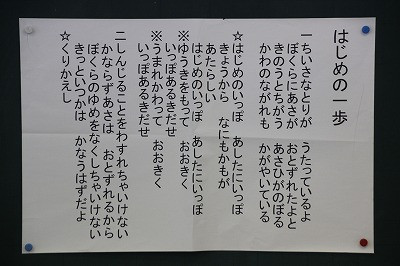 はじめの一歩
一ちいさなとりが　うたっているよ
ぼくらにあさが　おとずれたよと
きのうとちがう　あさひがのぼる
かわのながれも　かがやいている
☆はじめのいっぽ　あしたにいっぽ
きょうから　なにもかもが
あたらしい
はじめのいっぽ　あしたにいっぽ
※ゆうきをもって　おおきく
いっぽあるきだせ
※うまれかわって　おおきく
いっぽあるきだせ
二しんじることをわすれちゃいけない
かならずあさは　おとずれるから
ぼくらのゆめをなくしちゃいけない
きっといつかは　かなうはずだよ
☆くりかえし